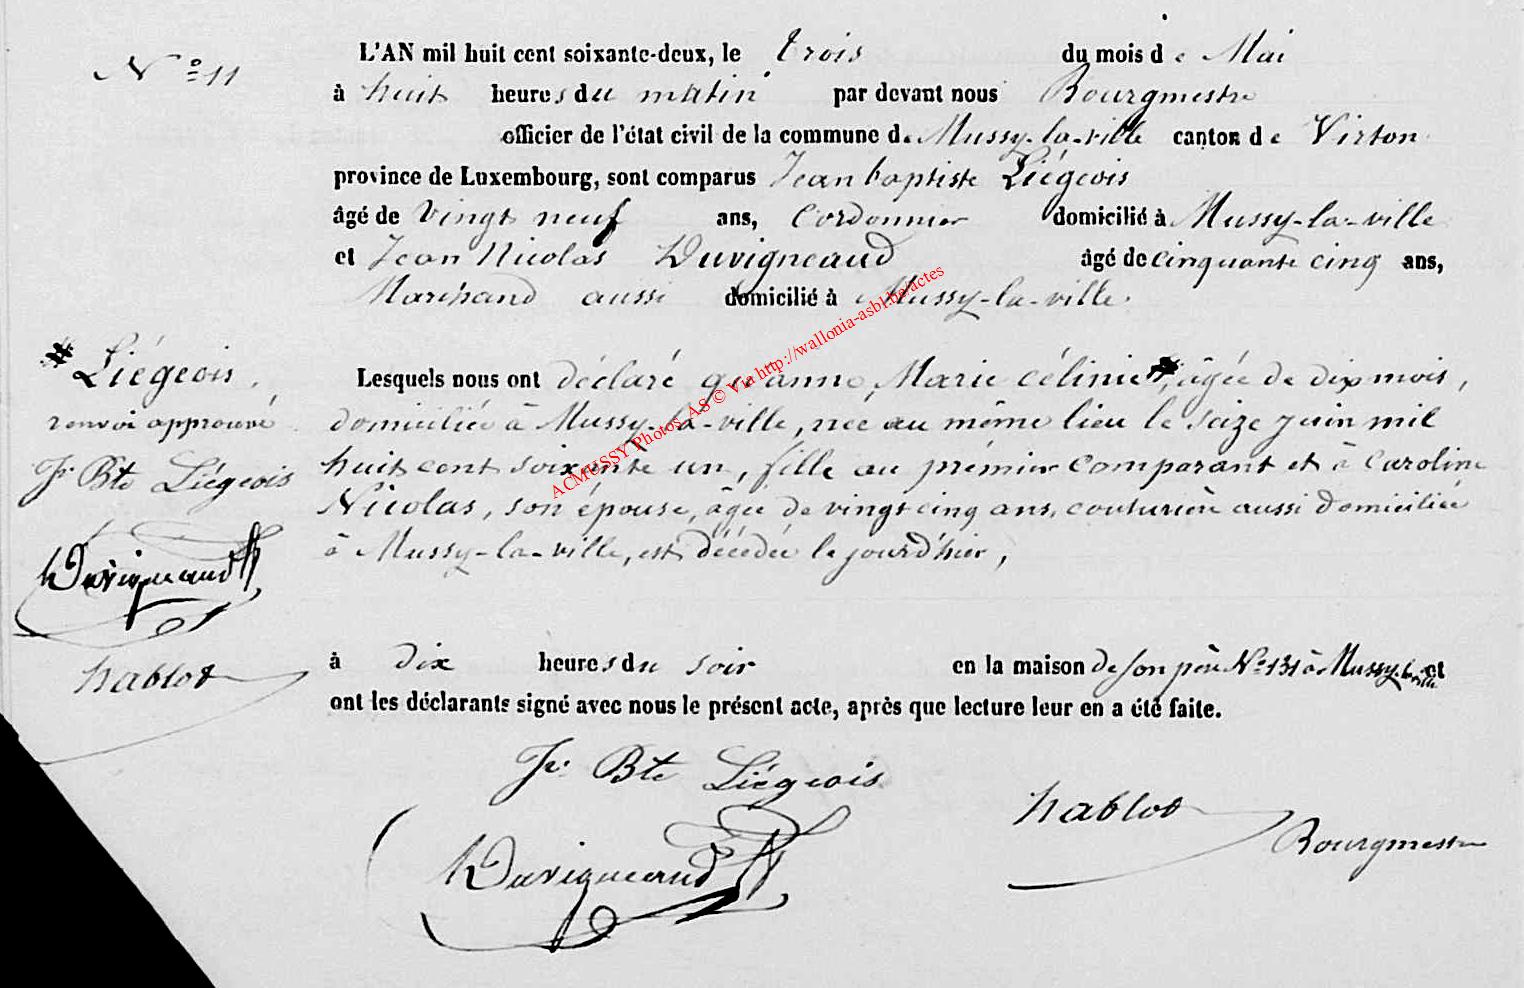 N° 11
L'AN mil huit cent soixante-deux, le trois du mois de Mai
à huit heures du matin par devant nous Bourgmestre
officier de l'état civil de la commune de Mussy-la-ville canton de Virton
province de Luxembourg, sont comparus Jean baptiste Liégeois
âgé de vingt neuf ans, Cordonnier domicilié à Mussy-la-ville
et Jean Nicolas Duvigneaud âgé de cinquante cinq ans,
Marchand aussi domicilié à Mussy-la-ville.
Liégeois,
renvoi approuvé
Jn Bte Liégeois
Duvigneaud
hablot
Lesquels nous ont déclaré que anne, Marie célinie, âgée de dix mois,
domiciliée à Mussy-la-ville, née au même lieu le seize juin mil
huit cent soixante un, fille au prémier comparant et à Caroline
Nicolas, son épouse, âgée de vingt cinq ans, couturière aussi domiciliée
à Mussy-la-ville, est décédée le jourd'hier,
à dix heures du soir en la maison de son père N° 131 à Mussy-la-ville et
ont les déclarants signé avec nous le présent acte, après que lecture leur en a été faite.
Jn Bte Liégeois
Duvigneaud
hablot
Bourgmestre
ACMUSSY Photos AS © Via http://wallonia-asbl.be/actes